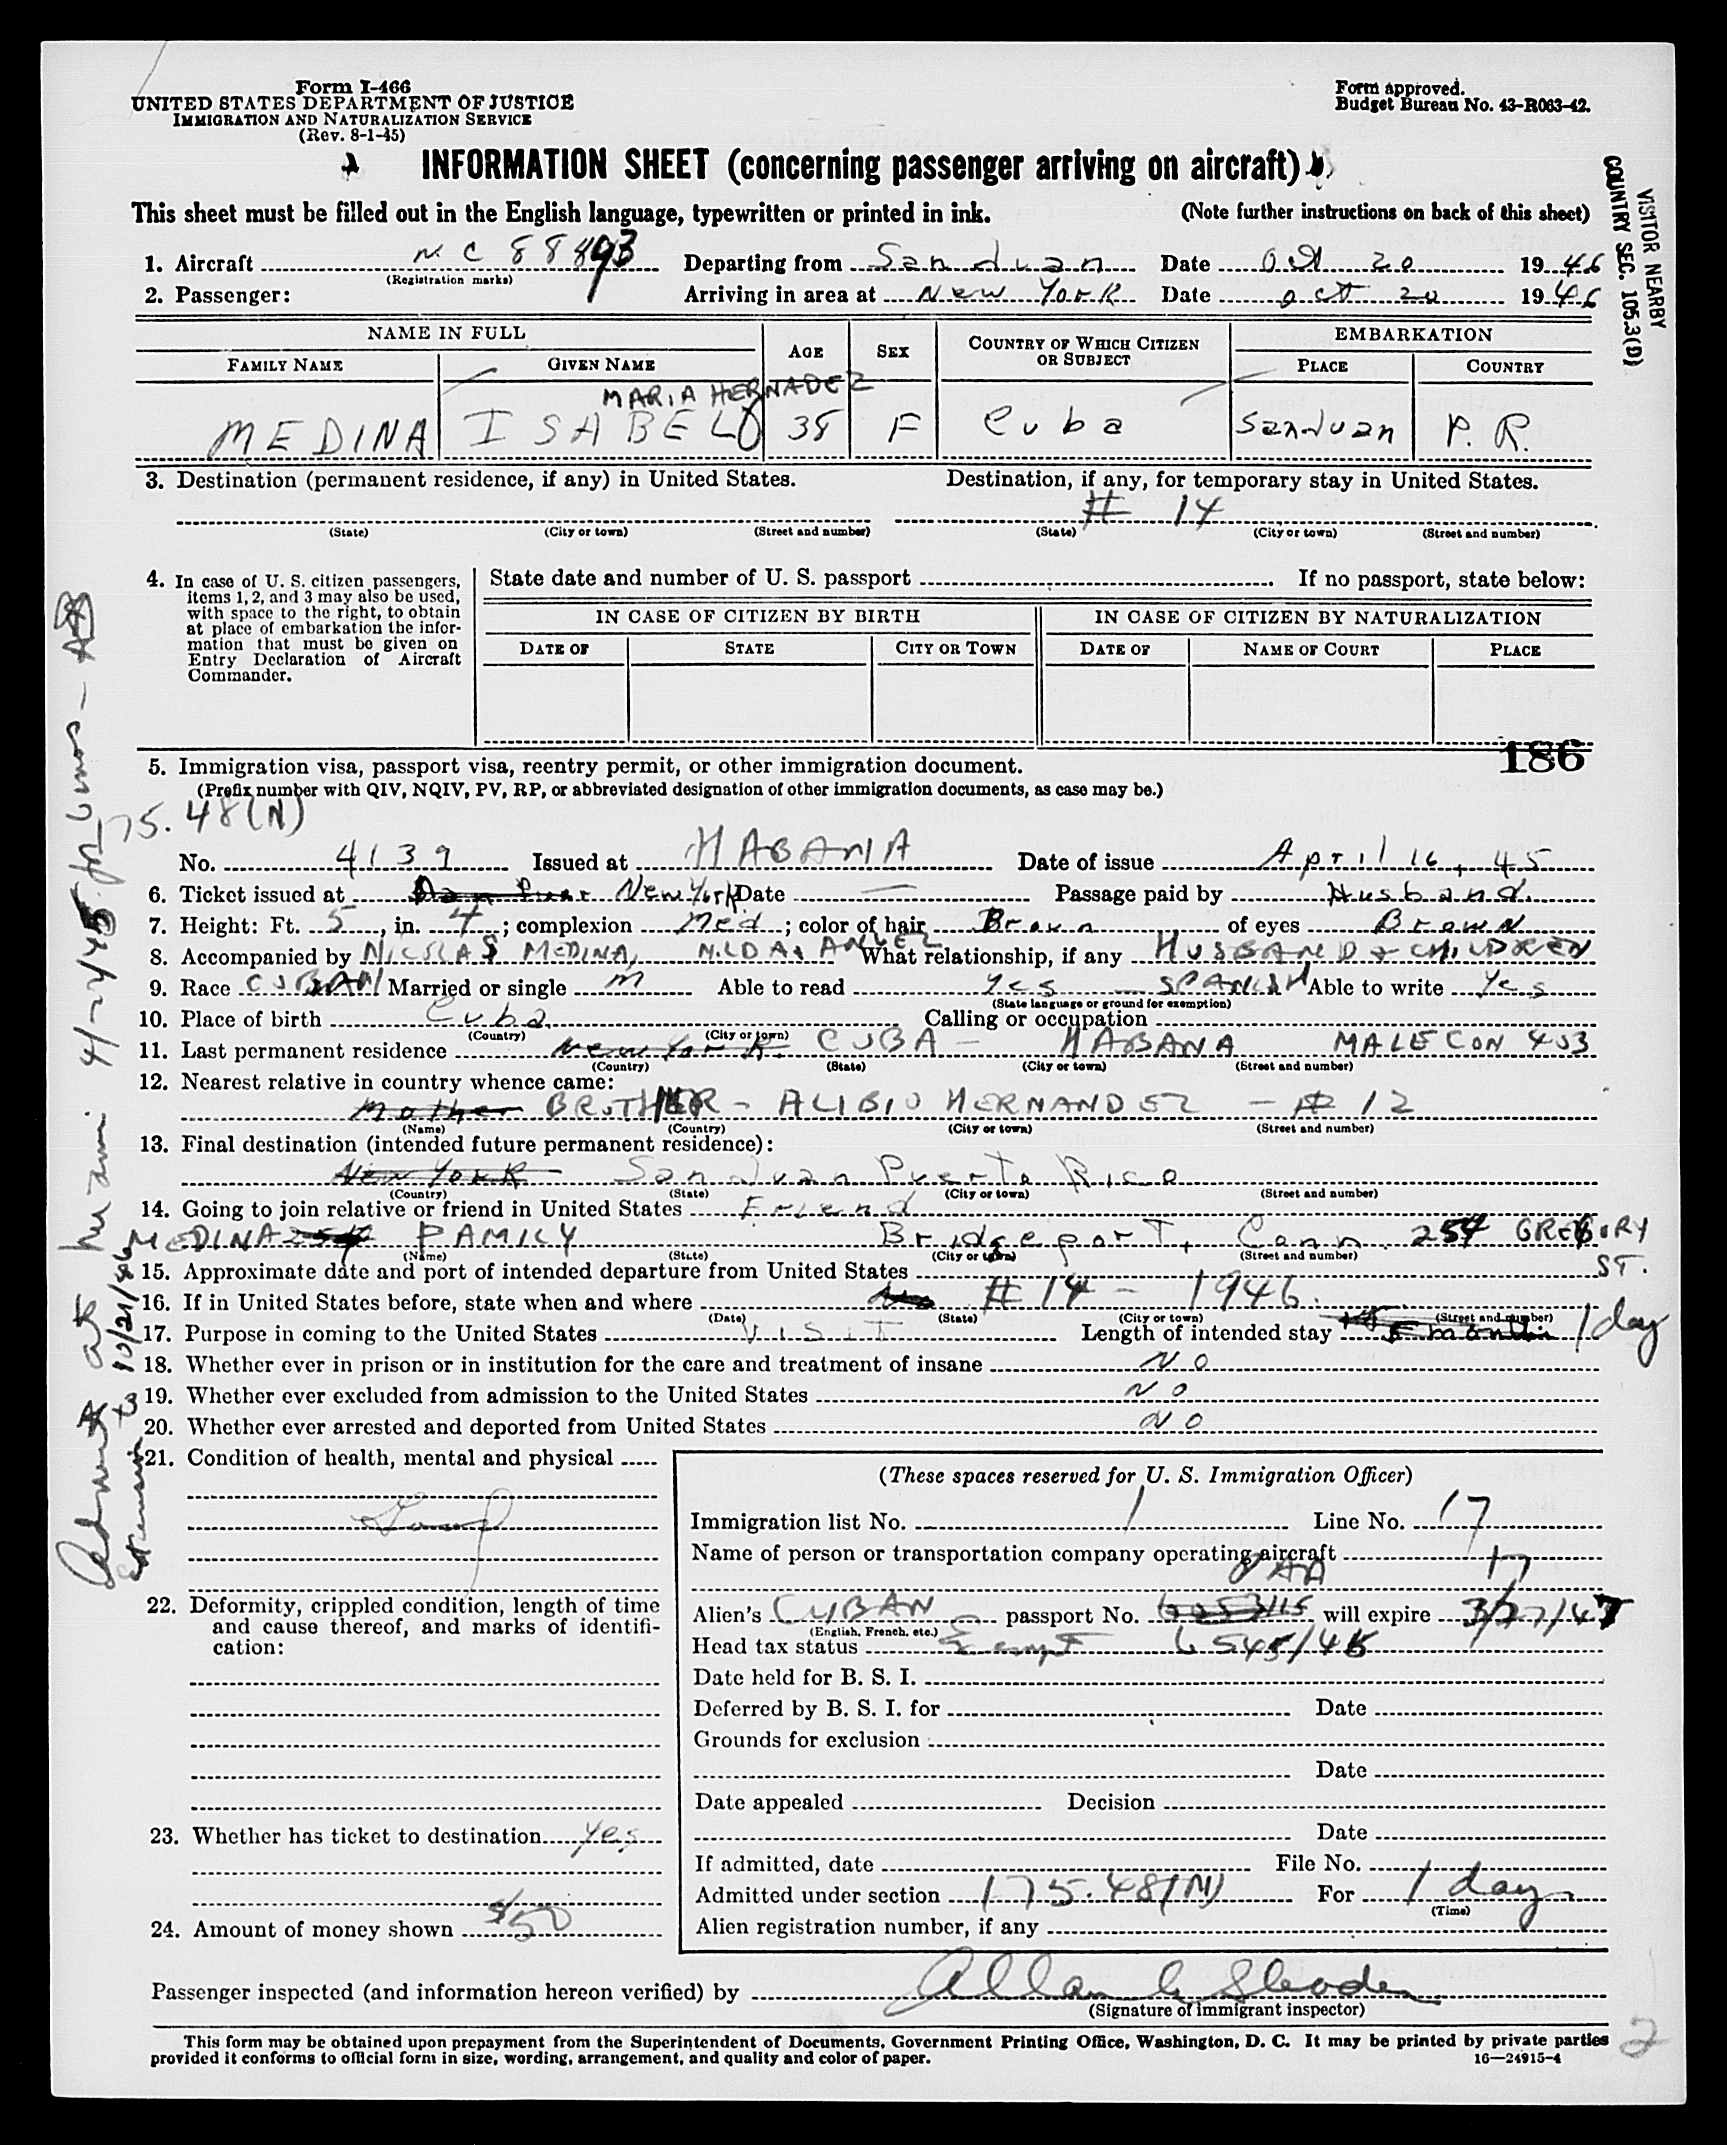 Form I-466
UNITED STATES DEPARTMENT OF JUSTICE
IMMIGRATION AND NATURALIZATION SERVICE
(Rev. 8-1-45)
Form approved.
Budget Bureau No. 43-R063-42.
INFORMATION SHEET (concerning passenger arriving on aircraft)
This sheet must be filled out in the English language, typewritten or printed in ink. (Note further instructions on back of this sheet)
VISITOR NEARBY
COUNTRY SEC. 105.3(D)
1. Aircraft NC 88893 Departing from San Juan Date Oct 20 1946
(Registration marks)
2. Passenger: Arriving in area at New York Date Oct 20 1946
NAME IN FULL AGE SEX COUNTRY OF WHICH CITIZEN OR SUBJECT EMBARKATION
FAMILY NAME GIVEN NAME PLACE COUNTRY
MARIA HERNADEZ
MEDINA ISABEL 38 F Cuba San Juan P.R.
3. Destination (permanent residence, if any) in United States. Destination, if any, for temporary stay in United States.
# 14
(State) (City or town) (Street and number) (State) (City or town) (Street and number)
4. In case of U. S. citizen passengers, items 1, 2, and 3 may also be used, with space to the right, to obtain at place of embarkation the information that must be given on Entry Declaration of Aircraft Commander.
State date and number of U. S. passport If no passport, state below:
IN CASE OF CITIZEN BY BIRTH IN CASE OF CITIZEN BY NATURALIZATION
DATE OF STATE CITY OR TOWN DATE OF NAME OF COURT PLACE
186
5. Immigration visa, passport visa, reentry permit, or other immigration document.
(Prefix number with QIV, NQIV, PV, RP, or abbreviated designation of other immigration documents, as case may be.)
175.48(N)
No. 4139 Issued at HABANA Date of issue April 16, 45
6. Ticket issued at New York Date — Passage paid by Husband
7. Height: Ft. 5, in. 4; complexion Med; color of hair Brown of eyes Brown
8. Accompanied by NICOLAS MEDINA, NILDA & ANGEL What relationship, if any HUSBAND & CHILDREN
9. Race CUBAN Married or single M Able to read Yes — SPANISH Able to write Yes
(State language or ground for exemption)
10. Place of birth Cuba Calling or occupation
(Country) (City or town)
11. Last permanent residence New York CUBA - HABANA MALECON 403
(Country) (State) (City or town) (Street and number)
12. Nearest relative in country whence came:
Mother BROTHER - ALIBIO HERNANDEZ - # 12
(Name) (Country) (City or town) (Street and number)
13. Final destination (intended future permanent residence):
New York San Juan Puerto Rico
(Country) (State) (City or town) (Street and number)
14. Going to join relative or friend in United States Friend
MEDINA FAMILY Bridgeport, Conn. 254 GREGORY ST.
(Name) (State) (City or town) (Street and number)
15. Approximate date and port of intended departure from United States
16. If in United States before, state when and where # 14 - 1946.
(Date) (State) (City or town) (Street and number)
17. Purpose in coming to the United States VISIT Length of intended stay 1 day
18. Whether ever in prison or in institution for the care and treatment of insane NO
19. Whether ever excluded from admission to the United States NO
20. Whether ever arrested and deported from United States NO
21. Condition of health, mental and physical
Good
22. Deformity, crippled condition, length of time and cause thereof, and marks of identification:
23. Whether has ticket to destination Yes
24. Amount of money shown $50
(These spaces reserved for U. S. Immigration Officer)
Immigration list No. 1 Line No. 17
Name of person or transportation company operating aircraft
PAA 17
Alien's CUBAN passport No. will expire 3/27/47
(English, French, etc.)
Head tax status Exempt 6545/45
Date held for B. S. I.
Deferred by B. S. I. for Date
Grounds for exclusion
Date
Date appealed Decision
Date
If admitted, date File No.
Admitted under section 175.48(N) For 1 day
(Time)
Alien registration number, if any
Passenger inspected (and information hereon verified) by
(Signature of immigrant inspector)
This form may be obtained upon prepayment from the Superintendent of Documents, Government Printing Office, Washington, D. C. It may be printed by private parties
provided it conforms to official form in size, wording, arrangement, and quality and color of paper. 16—24915-4
2
10/21/46